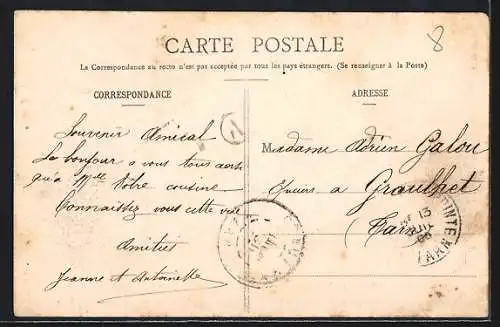 8
CARTE POSTALE
La Correspondance au recto n'est pas acceptée par tous les pays étrangers. (Se renseigner à la Poste)
CORRESPONDANCE
ADRESSE
Souvenir Amical
Le bonjour a vous tous
qu'a Mlle Votre cousine
Connaissez vous cette vue
Amitiés
Jeanne et Antoinette
Madame Adrien Galou
a Graulhet
Tarn
13
TARN